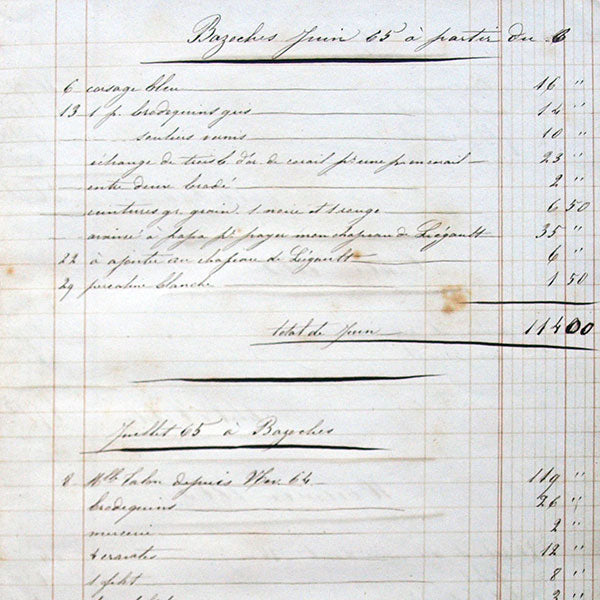 Bazoches Juin 65 à partir du 6
6 corsage bleu 16 "
13 1 p. brodequins gris 14 "
souliers vernis 10 "
échange de trois b. d'or. de corail pr une p. en corail 23 "
entre deux brodé 2 "
ceintures gr. grain, 1 noire et 1 rouge 6 50
à papa pr payer mon chapeau de Légault 35 "
22 à ajouter au chapeau de Légault 6 "
29 percaline blanche 1 50
total de Juin 114 00
Juillet 65 à Bazoches
8 Mlle Talon depuis 64 119 "
brodequins 26 "
mercerie 2 "
cravates 12 "
1 8 "
3 "